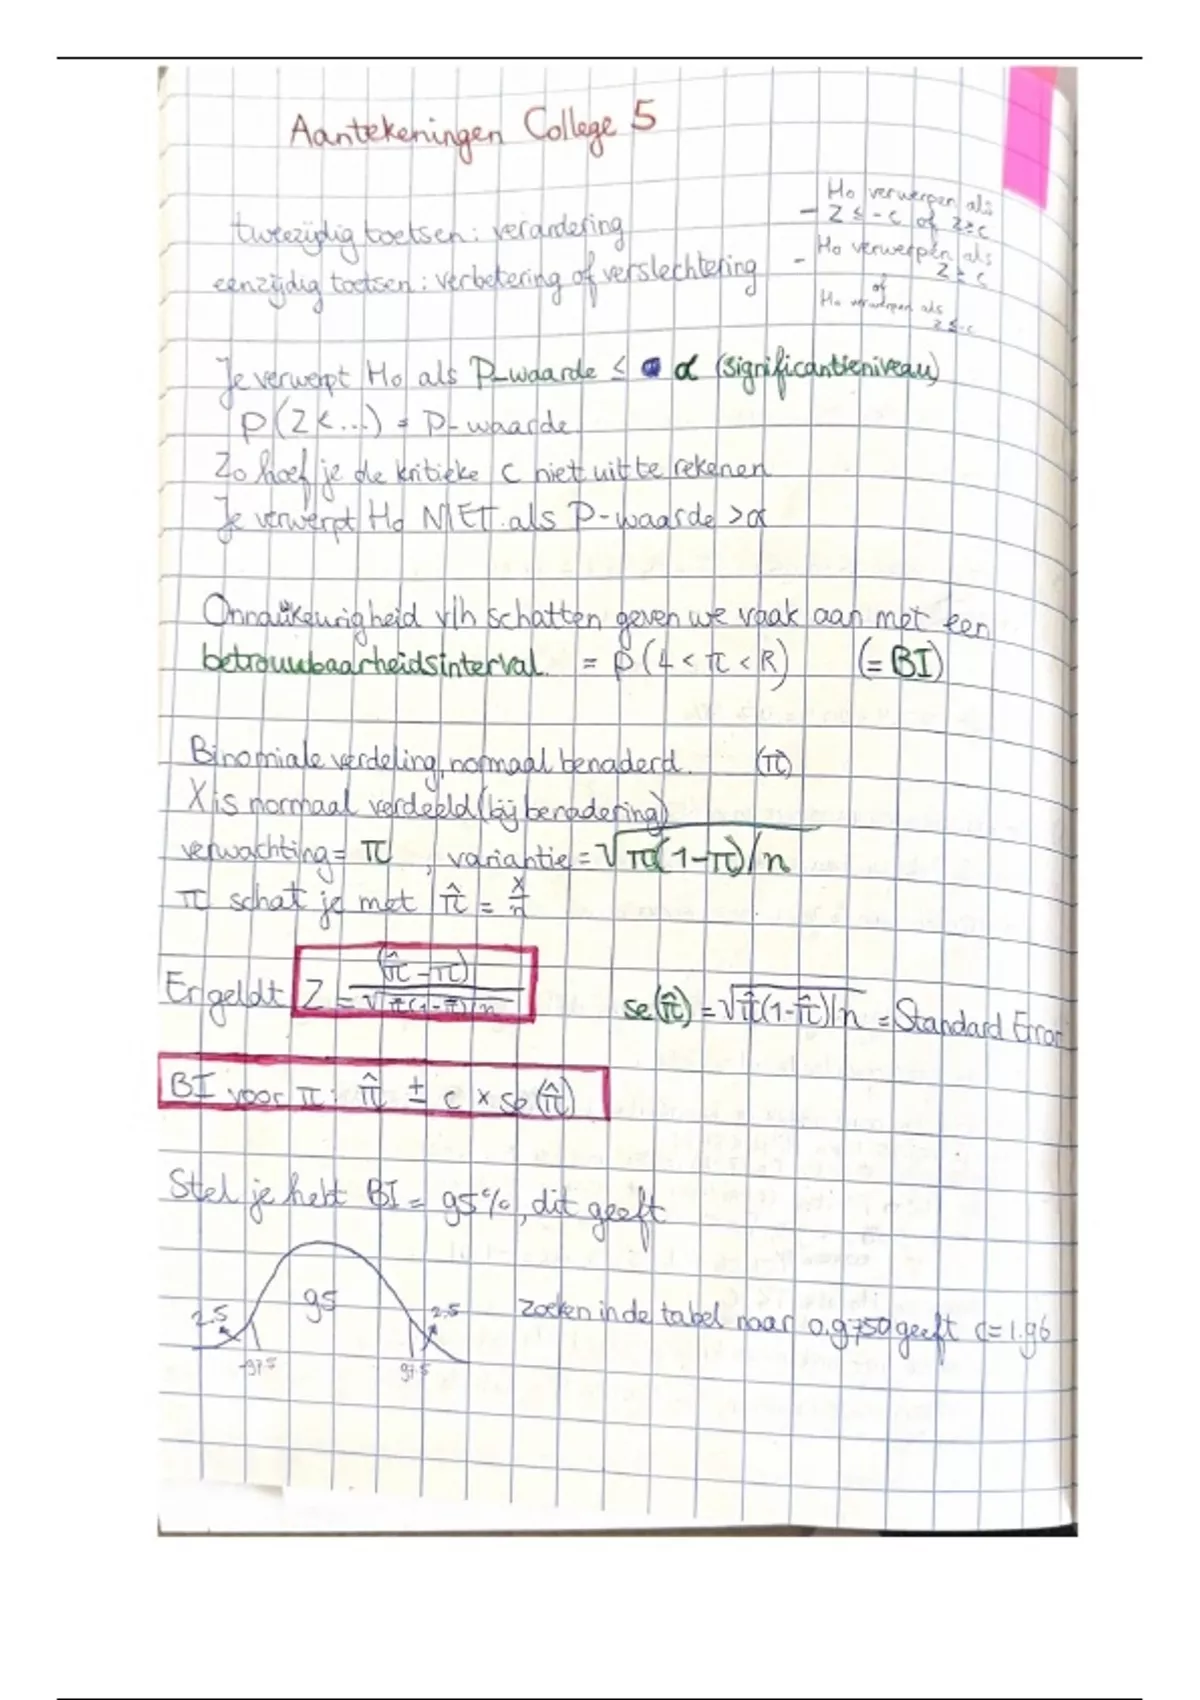 Aantekeningen College 5
tweezijdig toetsen: verandering
- H₀ verwerpen als
Z ≤ -c of Z≥c
eenzijdig toetsen: verbetering of verslechtering
- H₀ verwerpen als
Z ≥ c
of
H₀ verwerpen als
Z ≤ -c
Je verwerpt H₀ als P-waarde ≤ α (significantieniveau)
P(Z<...) = P-waarde.
Zo hoef je de kritieke c niet uit te rekenen
Je verwerpt H₀ NIET als P-waarde > α
Onnauwkeurigheid v/h schatten geven we vaak aan met een
betrouwbaarheidsinterval. = P(L < π < R) (= BI)
Binomiale verdeling, normaal benaderd. (π)
X is normaal verdeeld (bij benadering)
verwachting = π , variantie = √π(1-π)/n
π schat je met π̂ = x/n
Er geldt Z = (π̂ - π)/√π(1-π)/n
se(π̂) = √π̂(1-π̂)/n = Standard Error
BI voor π: π̂ ± c × se(π̂)
Stel je hebt BI = 95%, dit geeft
2.5 95 2.5
-97.5 97.5
zoeken in de tabel naar 0.9750 geeft c = 1.96